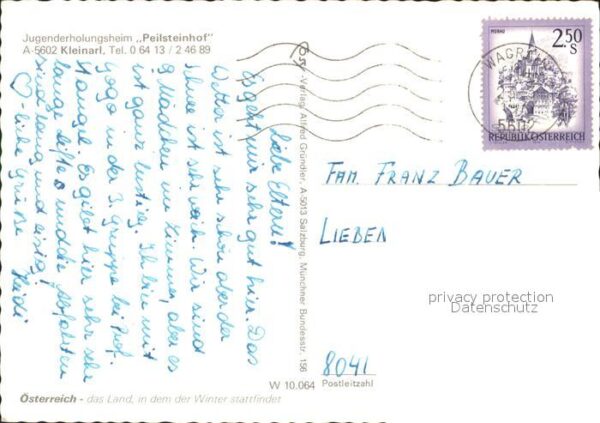 Jugenderholungsheim „Peilsteinhof"
A-5602 Kleinarl, Tel. 0 64 13 / 2 46 89
Liebe Eltern!
Es geht mir sehr gut hier. Das
Wetter ist sehr schön aber der
Schnee ist sehr weich. Wir sind
8 Mädchen im Zimmer, aber es
ist ganz lustig. Ich bin mit
Gogo in der 3. Gruppe bei Prof.
Stangl. Es gibt hier sehr sehr
lange Lifte und die Abfahrten
sind lang und eisig!
♡-liche Grüße
Heidi
Verlag Alfred Gründler, A 5013 Salzburg, Münchner Bundesstr. 156
MURAU
2.50
S
REPUBLIK ÖSTERREICH
WAGR
FAM. FRANZ BAUER
LIEBEN
8041
Postleitzahl
W 10.064
privacy protection
Datenschutz
Österreich - das Land, in dem der Winter stattfindet